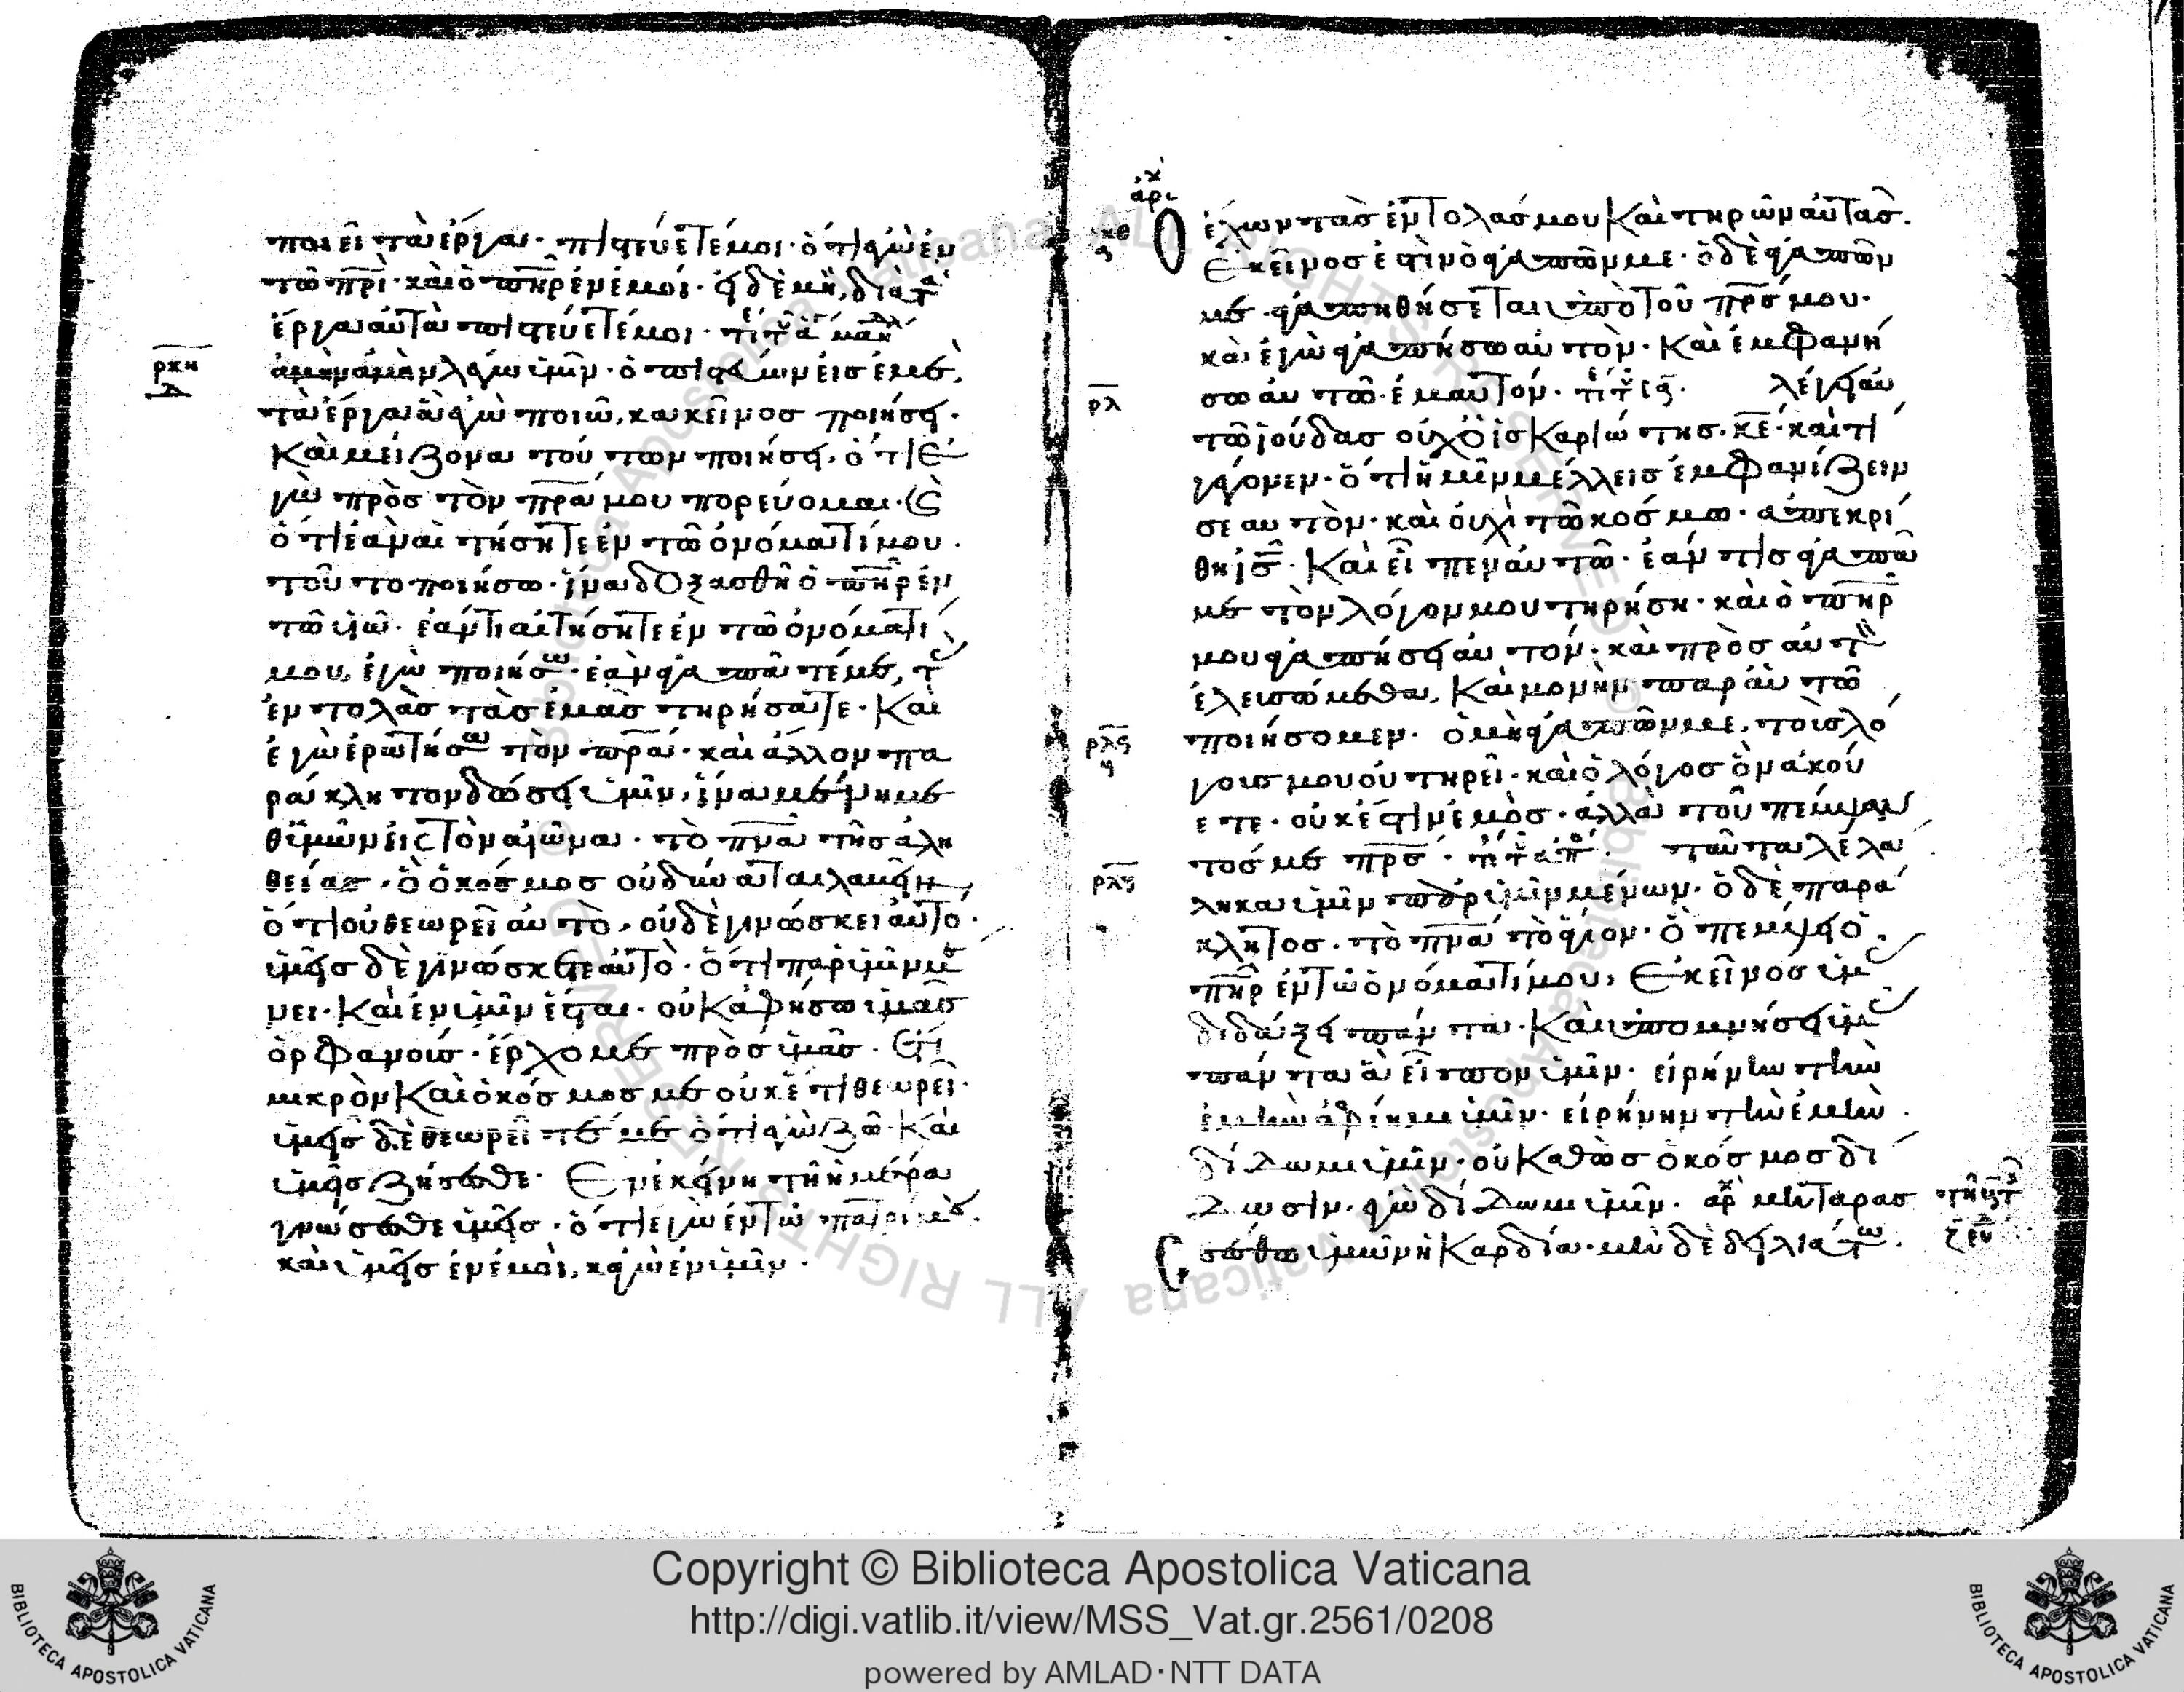 ποιεῖ τὰ ἔργα· πιστεύετέ μοι· ὅτι ἐγὼ ἐν
τῶ πρι· καὶ ὁ πηρ ἐν ἐμοί· εἰ δὲ μὴ, διὰ τὰ
ἔργα αὐτὰ πιστεύετέ μοι·
ρκη
ἀμὴν ἀμὴν λέγω ὑμῖν· ὁ πιστεύων εἰς ἐμὲ,
τὰ ἔργα ἃ ἐγὼ ποιῶ, κακεῖνος ποιήσει·
Καὶ μείζονα τούτων ποιήσει, ὅτι ἐ
γὼ πρὸς τὸν πρα μου πορεύομαι·
ὅ τι ἐὰν αἰτήσητε ἐν τῶ ὀνόματί μου.
τοῦτο ποιήσω· ἵνα δοξασθῆ ὁ πηρ ἐν
τῶ υἱῶ· ἐάν τι αἰτήσητε ἐν τῶ ὀνόματί
μου, ἐγὼ ποιήσω· ἐὰν ἀγαπᾶτέ με, τ
ἐντολὰς τὰς ἐμὰς τηρήσατε· Καὶ
ἐγὼ ἐρωτήσω τὸν πρα· καὶ ἄλλον πα
ράκλητον δώσει ὑμῖν, ἵνα μένη με
θ' ὑμῶν εἰς τὸν αἰῶνα· τὸ πνα τῆς ἀλη
θείας, ὃ ὁ κόσμος οὐ δύναται λαβεῖν,
ὅτι οὐ θεωρεῖ αὐτὸ, οὐδὲ γινώσκει αὐτό·
ὑμεῖς δὲ γινώσκετε αὐτὸ· ὅτι παρ' ὑμῖν μέ
νει· Καὶ ἐν ὑμῖν ἔσται· οὐκ ἀφήσω ὑμᾶς
ὀρφανούς· ἔρχομαι πρὸς ὑμᾶς. Ἔτι
μικρὸν Καὶ ὁ κόσμος με οὐκέτι θεωρεῖ·
ὑμεῖς δὲ θεωρεῖτέ με ὅτι ἐγὼ ζῶ· Καὶ
ὑμεῖς ζήσεσθε· Ἐν ἐκείνη τῆ ἡμέρα
γνώσεσθε ὑμεῖς· ὅτι ἐγὼ ἐν τῶ πατρί μου.
καὶ ὑμεῖς ἐν ἐμοὶ, κἀγὼ ἐν ὑμῖν.
Ὁ ἔχων τὰς ἐντολάς μου Καὶ τηρῶν αὐτὰς.
Ἐκεῖνος ἐστὶν ὁ ἀγαπῶν με· ὁ δὲ ἀγαπῶν
με ἀγαπηθήσεται ὑπὸ τοῦ πρς μου·
καὶ ἐγὼ ἀγαπήσω αὐτὸν· Καὶ ἐμφανή
ρλ
σω αὐτῶ ἐμαυτόν. λέγει αὐ
τῶ ἰούδας οὐχ ὁ ἰσκαριώτης. κε· καὶ τί
γέγονεν· ὅτι ἡμῖν μέλλεις ἐμφανίζειν
σεαυτὸν· καὶ οὐχὶ τῶ κόσμω· ἀπεκρί
θη ις· Καὶ εἶπεν αὐτῶ· ἐάν τις ἀγαπᾶ
με τὸν λόγον μου τηρήση· καὶ ὁ πηρ
μου ἀγαπήσει αὐτόν· καὶ πρὸς αὐτὸν
ἐλευσώμεθα, Καὶ μονὴν παρ' αὐτῶ
ποιήσομεν. ὁ μὴ ἀγαπῶν με, τοὺς λό
γους μου οὐ τηρεῖ· καὶ ὁ λόγος ὃν ἀκού
ετε· οὐκ ἔστιν ἐμὸς· ἀλλὰ τοῦ πέμψαν
τός με πρς· ταῦτα λελά
ληκα ὑμῖν παρ' ὑμῖν μένων· ὁ δὲ παρά
κλητος· τὸ πνα τὸ ἅγιον· ὃ πέμψει ὁ
πηρ ἐν τῶ ὀνόματί μου, Ἐκεῖνος ὑμ
διδάξει πάντα· Καὶ ὑπομνήσει ὑμ
πάντα ἃ εἶπον ὑμῖν· εἰρήνην τὴν
ἐμὴν ἀφίημι ὑμῖν· εἰρήνην τὴν ἐμὴν.
δίδωμι ὑμῖν· οὐ Καθὼς ὁ κόσμος δί
δωσιν· ἐγὼ δίδωμι ὑμῖν. μὴ ταρασ
σέσθω ὑμῶν ἡ Καρδία· μὴ δὲ δειλιάτω.
Copyright © Biblioteca Apostolica Vaticana
http://digi.vatlib.it/view/MSS_Vat.gr.2561/0208
powered by AMLAD·NTT DATA
BIBLIOTECA APOSTOLICA VATICANA
BIBLIOTECA APOSTOLICA VATICANA